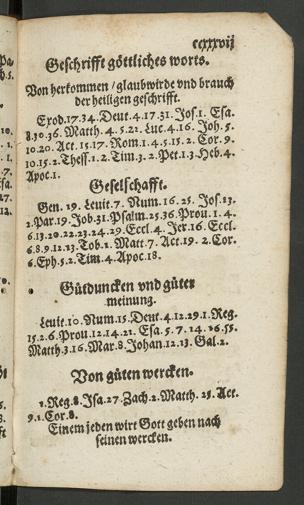 ccxxxvij
Geschrifft göttliches worts.
Von herkommen / glaubwirde vnd brauch
der heiligen geschrifft.
Exod.17.34. Deut.4.17.31. Jos.1. Esa.
8.30.36. Matth.4.5.21. Luc.4.16. Joh.5.
10.20. Act.15.17. Rom.1.4.5.15.2. Cor.9.
10.15.2. Thess.1.2. Tim.3.2. Pet.1.3. Heb.4.
Apoc.1.
Geselschafft.
Gen.19. Leuit.7. Num.16.25. Jos.23.
2.Par.19. Job.31. Psalm.25.36. Prou.1.4.
6.13.20.22.23.24.29. Eccl.4. Jer.16. Eccl.
6.8.9.12.13. Tob.1. Matt.7. Act.19.2. Cor.
6. Eph.5.2. Tim.4. Apoc.18.
Gütduncken vnd güter
meinung.
Leuit.10. Num.15. Deut.4.12.29.1. Reg.
15.2.6. Prou.12.14.21. Esa.5.7.14.26.55.
Matth.3.16. Mar.8. Johan.12.13. Gal.2.
Von güten wercken.
1.Reg.8. Jsa.27. Zach.2. Matth.25. Act.
9.1. Cor.8.
Einem jeden wirt Gott geben nach
seinen wercken.